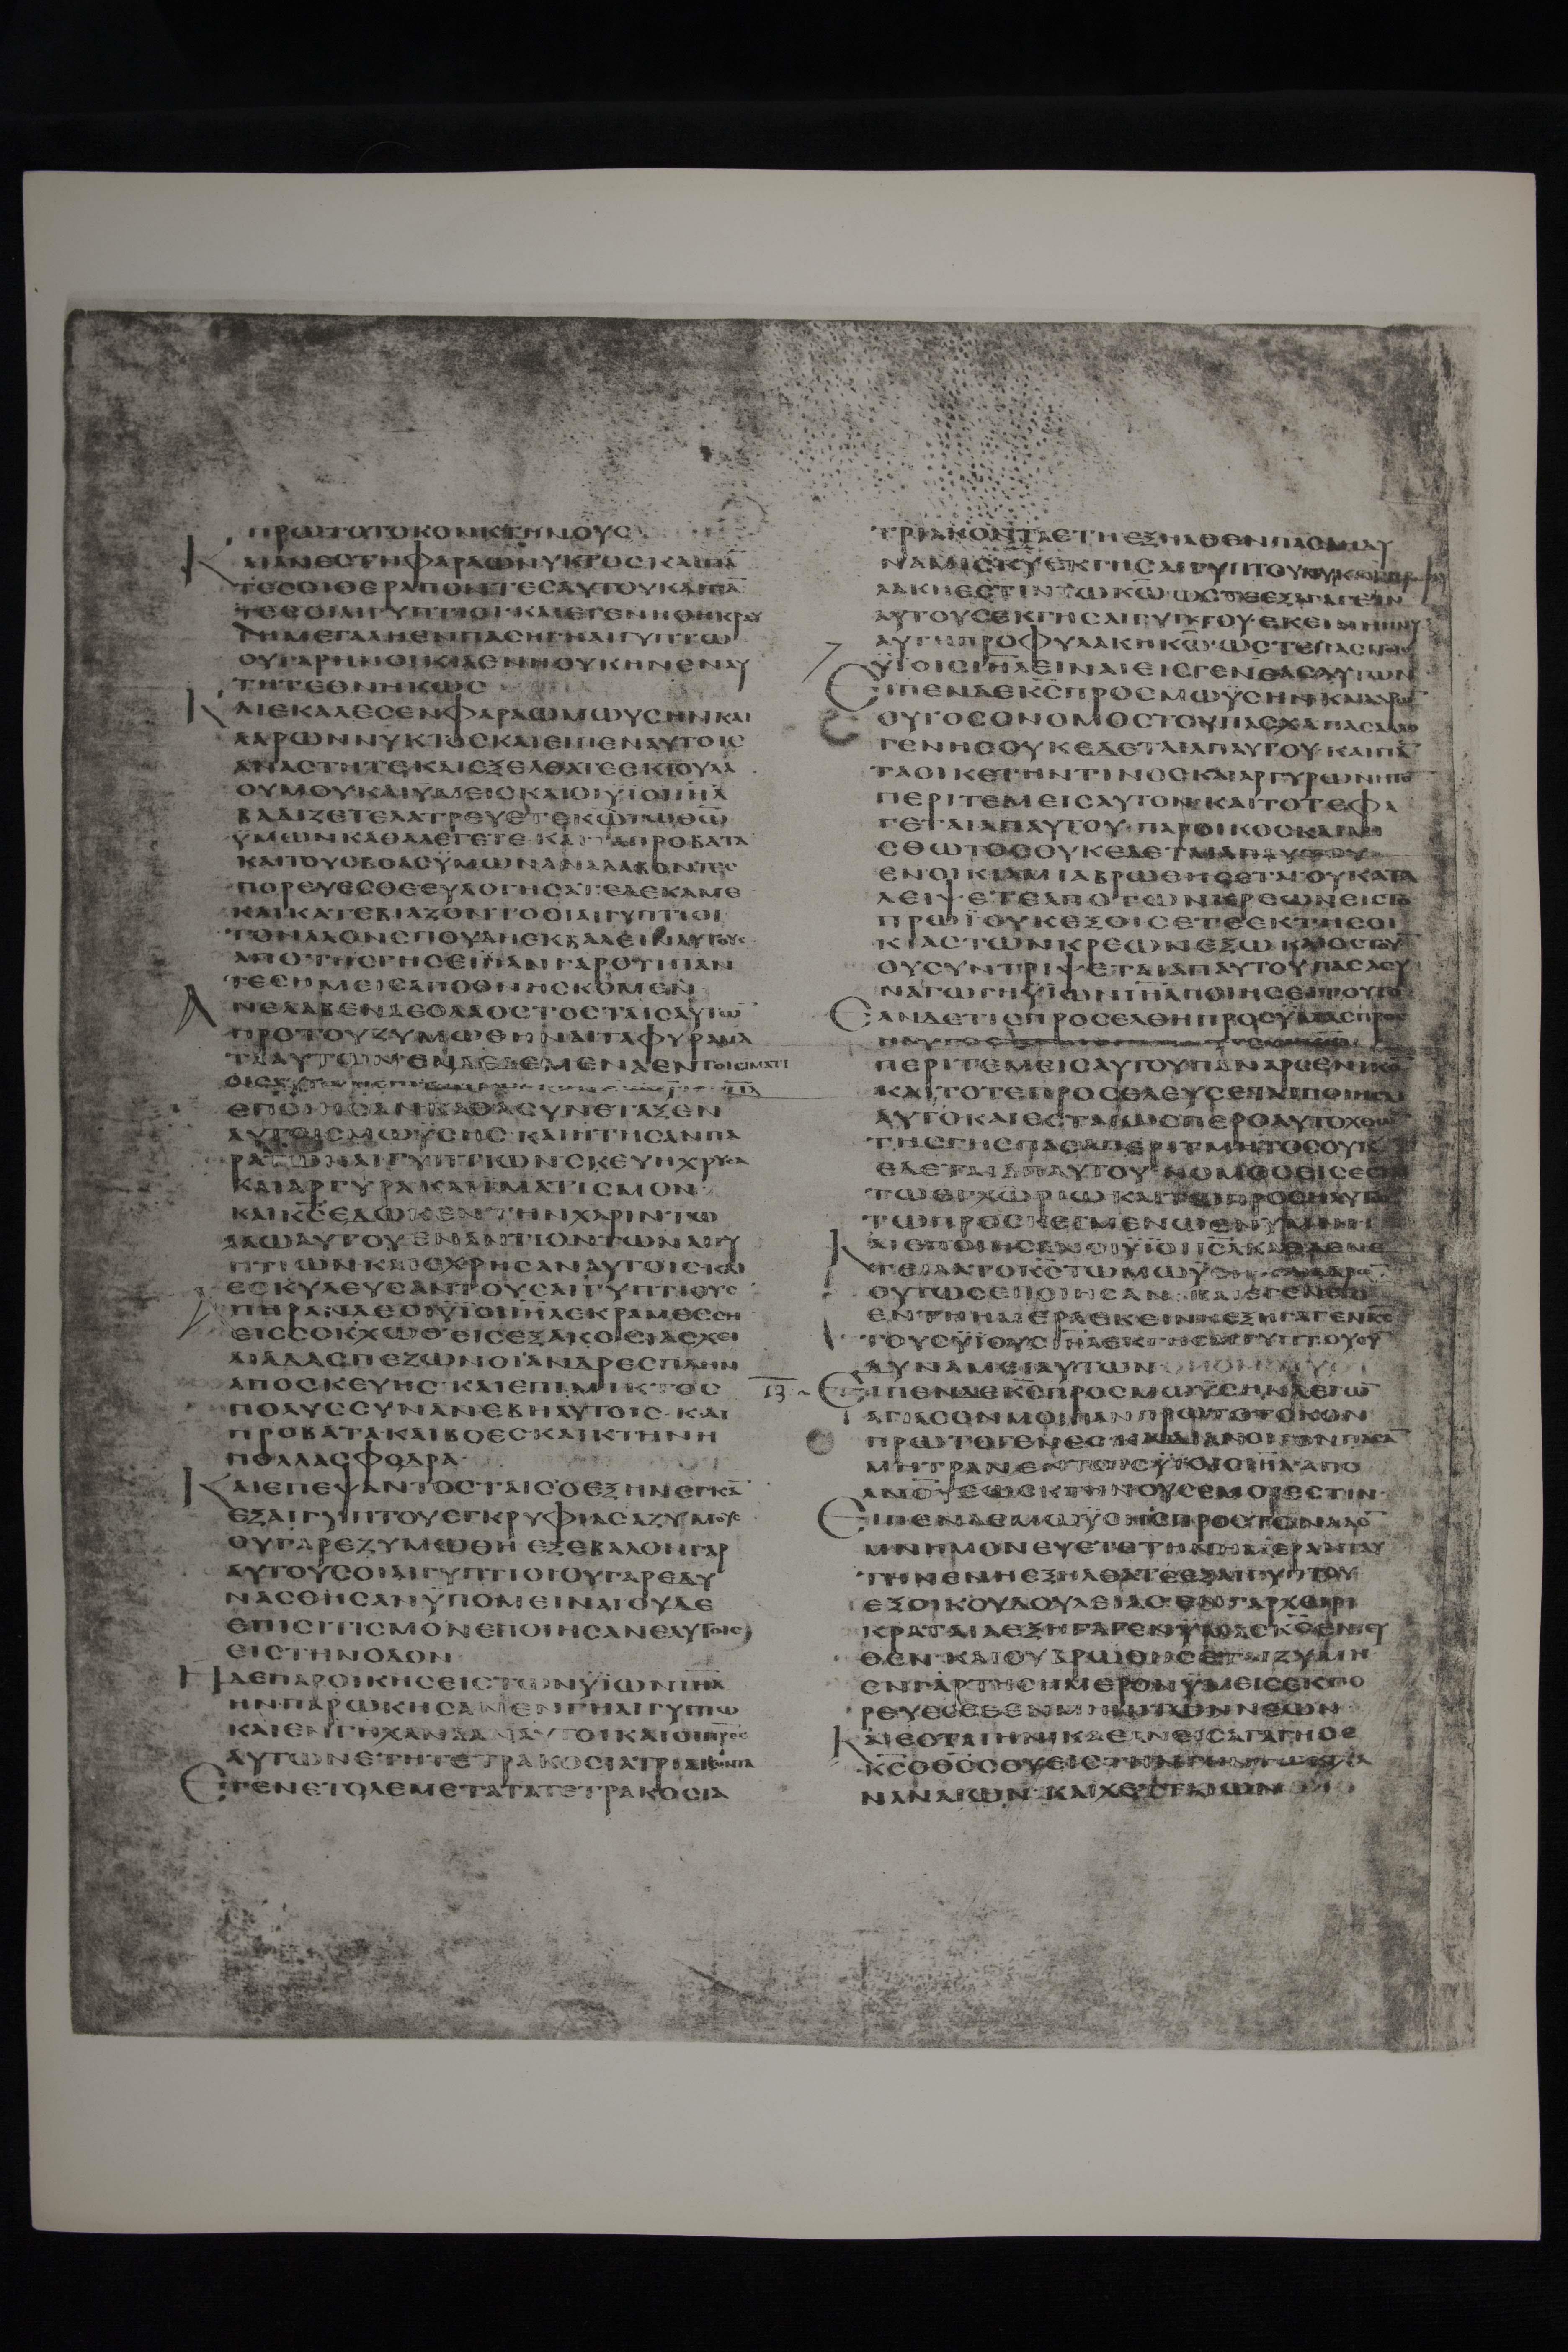 ΠΡΩΤΟΤΟΚΟΝΚΤΗΝΟΥΣ
ΚΑΙΑΝΕΣΤΗΦΑΡΑΩΝΥΚΤΟΣΚΑΙΠΑ
ΤΕΣΟΙΘΕΡΑΠΟΝΤΕΣΑΥΤΟΥΚΑΙΠΑ
ΤΕΣΟΙΑΙΓΥΠΤΙΟΙ·ΚΑΙΕΓΕΝΗΘΗΚΡΑΥ
ΓΗΜΕΓΑΛΗΕΝΠΑΣΗΓΗΑΙΓΥΠΤΩ
ΟΥΓΑΡΗΝΟΙΚΙΑΕΝΗΟΥΚΗΝΕΝΑΥ
ΤΗΤΕΘΝΗΚΩΣ
ΚΑΙΕΚΑΛΕΣΕΝΦΑΡΑΩΜΩΥΣΗΝΚΑΙ
ΑΑΡΩΝΝΥΚΤΟΣΚΑΙΕΙΠΕΝΑΥΤΟΙΣ
ΑΝΑΣΤΗΤΕΚΑΙΕΞΕΛΘΑΤΕΕΚΤΟΥΛΑ
ΟΥΜΟΥΚΑΙΥΜΕΙΣΚΑΙΟΙΥΙΟΙΙΗΛ
ΒΑΔΙΖΕΤΕΛΑΤΡΕΥΕΤΕΚΩΤΩΘΩ
ΥΜΩΝΚΑΘΑΛΕΓΕΤΕ·ΚΑΙΤΑΠΡΟΒΑΤΑ
ΚΑΙΤΟΥΣΒΟΑΣΥΜΩΝΑΝΑΛΑΒΟΝΤΕΣ
ΠΟΡΕΥΕΣΘΕΕΥΛΟΓΗΣΑΤΕΔΕΚΑΜΕ
ΚΑΙΚΑΤΕΒΙΑΖΟΝΤΟΟΙΑΙΓΥΠΤΙΟΙ
ΤΟΝΛΑΟΝΣΠΟΥΔΗΕΚΒΑΛΕΙΝΑΥΤΟΥΣ
ΑΠΟΤΗΣΓΗΣΕΙΠΑΝΓΑΡΟΤΙΠΑΝ
ΤΕΣΗΜΕΙΣΑΠΟΘΝΗΣΚΟΜΕΝ
ΑΝΕΛΑΒΕΝΔΕΟΛΑΟΣΤΟΣΤΑΙΣΑΥΤΩ
ΠΡΟΤΟΥΖΥΜΩΘΗΝΑΙΤΑΦΥΡΑΜΑ
ΤΑΑΥΤΩΝΕΝΔΕΔΕΜΕΝΑΕΝΤΟΙΣΙΜΑΤΙ
ΕΠΟΙΗΣΑΝΚΑΘΑΣΥΝΕΤΑΞΕΝ
ΑΥΤΟΙΣΜΩΥΣΗΣ·ΚΑΙΗΤΗΣΑΝΠΑ
ΡΑΤΩΝΑΙΓΥΠΤΙΩΝΣΚΕΥΗΧΡΥΣΑ
ΚΑΙΑΡΓΥΡΑΚΑΙΙΜΑΤΙΣΜΟΝ
ΚΑΙΚΣΕΔΩΚΕΝΤΗΝΧΑΡΙΝΤΩ
ΛΑΩΑΥΤΟΥΕΝΑΝΤΙΟΝΤΩΝΑΙΓΥ
ΠΤΙΩΝΚΑΙΕΧΡΗΣΑΝΑΥΤΟΙΣΚΑΙ
ΕΣΚΥΛΕΥΣΑΝΤΟΥΣΑΙΓΥΠΤΙΟΥΣ
ΑΠΗΡΑΝΔΕΟΙΥΙΟΙΙΗΛΕΚΡΑΜΕΣΣΗ
ΕΙΣΣΟΚΧΩΘΕΙΣΕΞΑΚΟΣΙΑΣΧΕΙ
ΛΙΑΔΑΣΠΕΖΩΝΟΙΑΝΔΡΕΣΠΛΗΝ
ΑΠΟΣΚΕΥΗΣ·ΚΑΙΕΠΙΜΙΚΤΟΣ
ΠΟΛΥΣΣΥΝΑΝΕΒΗΑΥΤΟΙΣ·ΚΑΙ
ΠΡΟΒΑΤΑΚΑΙΒΟΕΣΚΑΙΚΤΗΝΗ
ΠΟΛΛΑΣΦΟΔΡΑ·
ΚΑΙΕΠΕΨΑΝΤΟΣΤΑΙΣΟΕΞΗΝΕΓΚΑ
ΕΞΑΙΓΥΠΤΟΥΕΓΚΡΥΦΙΑΣΑΖΥΜΟΥΣ
ΟΥΓΑΡΕΖΥΜΩΘΗΕΞΕΒΑΛΟΝΓΑΡ
ΑΥΤΟΥΣΟΙΑΙΓΥΠΤΙΟΙΟΥΓΑΡΕΔΥ
ΝΑΣΘΗΣΑΝΥΠΟΜΕΙΝΑΙΟΥΔΕ
ΕΠΙΣΙΤΙΣΜΟΝΕΠΟΙΗΣΑΝΕΑΥΤΟΙΣ
ΕΙΣΤΗΝΟΔΟΝ
ΗΔΕΠΑΡΟΙΚΗΣΕΙΣΤΩΝΥΙΩΝΙΗΛ
ΗΝΠΑΡΩΚΗΣΑΝΕΝΓΗΑΙΓΥΠΤΩ
ΚΑΙΕΝΓΗΧΑΝΑΑΝΑΥΤΟΙΚΑΙΟΙΠΡΕΣ
ΑΥΤΩΝΕΤΗΤΕΤΡΑΚΟΣΙΑΤΡΙΑΚΟΝΤΑ
ΕΓΕΝΕΤΟΔΕΜΕΤΑΤΑΤΕΤΡΑΚΟΣΙΑ
ΤΡΙΑΚΟΝΤΑΕΤΗΕΞΗΛΘΕΝΠΑΣΑΗΔΥ
ΝΑΜΙΣΚΥΕΚΓΗΣΑΙΓΥΠΤΟΥ
ΛΑΚΗΕΣΤΙΝΤΩΚΩΩΣΤΕΕΞΑΓΑΓΕΙΝ
ΑΥΤΟΥΣΕΚΓΗΣΑΙΓΥΠΤΟΥ·ΕΚΕΙΝΗΗΝΥ
ΑΥΤΗΠΡΟΦΥΛΑΚΗΚΩ·ΩΣΤΕΠΑΣΙΤΟΙΣ
ΥΙΟΙΣΙΗΛΕΙΝΑΙΕΙΣΓΕΝΕΑΣΑΥΤΩΝ
ΕΙΠΕΝΔΕΚΣΠΡΟΣΜΩΥΣΗΝΚΑΙΑΑΡΩ
ΟΥΤΟΣΟΝΟΜΟΣΤΟΥΠΑΣΧΑΠΑΣΑΛΛΟ
ΓΕΝΗΣΟΥΚΕΔΕΤΑΙΑΠΑΥΤΟΥ·ΚΑΙΠΑ
ΤΑΟΙΚΕΤΗΝΤΙΝΟΣΚΑΙΑΡΓΥΡΩΝΗΤΟ
ΠΕΡΙΤΕΜΕΙΣΑΥΤΟΝΚΑΙΤΟΤΕΦΑ
ΓΕΤΑΙΑΠΑΥΤΟΥ·ΠΑΡΟΙΚΟΣΚΑΙΜΙ
ΣΘΩΤΟΣΟΥΚΕΔΕΤΑΙΑΠΑΥΤΟΥ
ΕΝΟΙΚΙΑΜΙΑΒΡΩΘΗΣΕΤΑΙΟΥΚΑΤΑ
ΛΕΙΨΕΤΕΑΠΟΤΩΝΚΡΕΩΝΕΙΣΤΟ
ΠΡΩΙΟΥΚΕΞΟΙΣΕΤΕΕΚΤΗΣΟΙ
ΚΙΑΣΤΩΝΚΡΕΩΝΕΞΩΚΑΙΟΣΤΟΥ
ΟΥΣΥΝΤΡΙΨΕΤΑΙΑΠΑΥΤΟΥΠΑΣΑΣΥ
ΝΑΓΩΓΗΥΙΩΝΙΗΛΠΟΙΗΣΕΙΤΟΥΤΟ
ΕΑΝΔΕΤΙΣΠΡΟΣΕΛΘΗΠΡΟΣΥΜΑΣΠΡΟΣ
ΠΕΡΙΤΕΜΕΙΣΑΥΤΟΥΠΑΝΑΡΣΕΝΙΚΟ
ΚΑΙΤΟΤΕΠΡΟΣΕΛΕΥΣΕΤΑΙΠΟΙΗΣΑΙ
ΑΥΤΟΚΑΙΕΣΤΑΙΩΣΠΕΡΟΑΥΤΟΧΘΩ
ΤΗΣΓΗΣΠΑΣΑΠΕΡΙΤΜΗΤΟΣΟΥΚ
ΕΔΕΤΑΙΑΠΑΥΤΟΥ·ΝΟΜΟΣΕΙΣΕΣΤΑΙ
ΤΩΕΓΧΩΡΙΩΚΑΙΤΩ
ΤΩΠΡΟΣΚΕΙΜΕΝΩΕΝΥΜΙΝ
ΚΑΙΕΠΟΙΗΣΑΝΟΙΥΙΟΙΙΣΛΚΑΘΑΕΝΕ
ΤΕΙΛΑΤΟΚΣΤΩΜΩΥΣΗ
ΟΥΤΩΣΕΠΟΙΗΣΑΝ·ΚΑΙΕΓΕΝΕΤΟ
ΕΝΤΗΗΜΕΡΑΕΚΕΙΝΗΕΞΗΓΑΓΕΝΚΣ
ΤΟΥΣΥΙΟΥΣΙΗΛΕΚΓΗΣΑΙΓΥΠΤΟΥΣΥ
ΔΥΝΑΜΕΙΑΥΤΩΝ
13
ΕΙΠΕΝΔΕΚΣΠΡΟΣΜΩΥΣΗΝΛΕΓΩ
ΑΓΙΑΣΟΝΜΟΙΠΑΝΠΡΩΤΟΤΟΚΟΝ
ΠΡΩΤΟΓΕΝΕΣΚΑΙΔΙΑΝΟΙΓΟΝΠΑΣΑ
ΜΗΤΡΑΝΕΝΤΟΙΣΥΙΟΙΣΙΗΛΑΠΟ
ΑΝΟΥΕΩΣΚΤΗΝΟΥΣΕΜΟΙΕΣΤΙΝ
ΕΙΠΕΝΔΕΜΩΥΣΗΣΠΡΟΣΤΟΝΛΑΟ
ΜΝΗΜΟΝΕΥΕΤΕΤΗΝΗΜΕΡΑΝΤΑΥ
ΤΗΝΕΝΗΕΞΗΛΘΑΤΕΕΞΑΙΓΥΠΤΟΥ
ΕΞΟΙΚΟΥΔΟΥΛΕΙΑΣΕΝΓΑΡΧΕΙΡΙ
ΚΡΑΤΑΙΑΕΞΗΓΑΓΕΝΥΜΑΣΚΣΕΝΤΕΥ
ΘΕΝ·ΚΑΙΟΥΒΡΩΘΗΣΕΤΑΙΖΥΜΗ
ΕΝΓΑΡΤΗΣΗΜΕΡΟΝΥΜΕΙΣΕΚΠΟ
ΡΕΥΕΣΘΕΕΝΜΗΝΙΤΩΝΝΕΩΝ
ΚΑΙΕΣΤΑΙΗΝΙΚΑΕΑΝΕΙΣΑΓΑΓΗΣΕ
ΚΣΟΘΣΣΟΥΕΙΣΤΗΝΓΗΝΤΩΝΧΑ
ΝΑΝΑΙΩΝ·ΚΑΙΧΕΤΤΑΙΩΝ